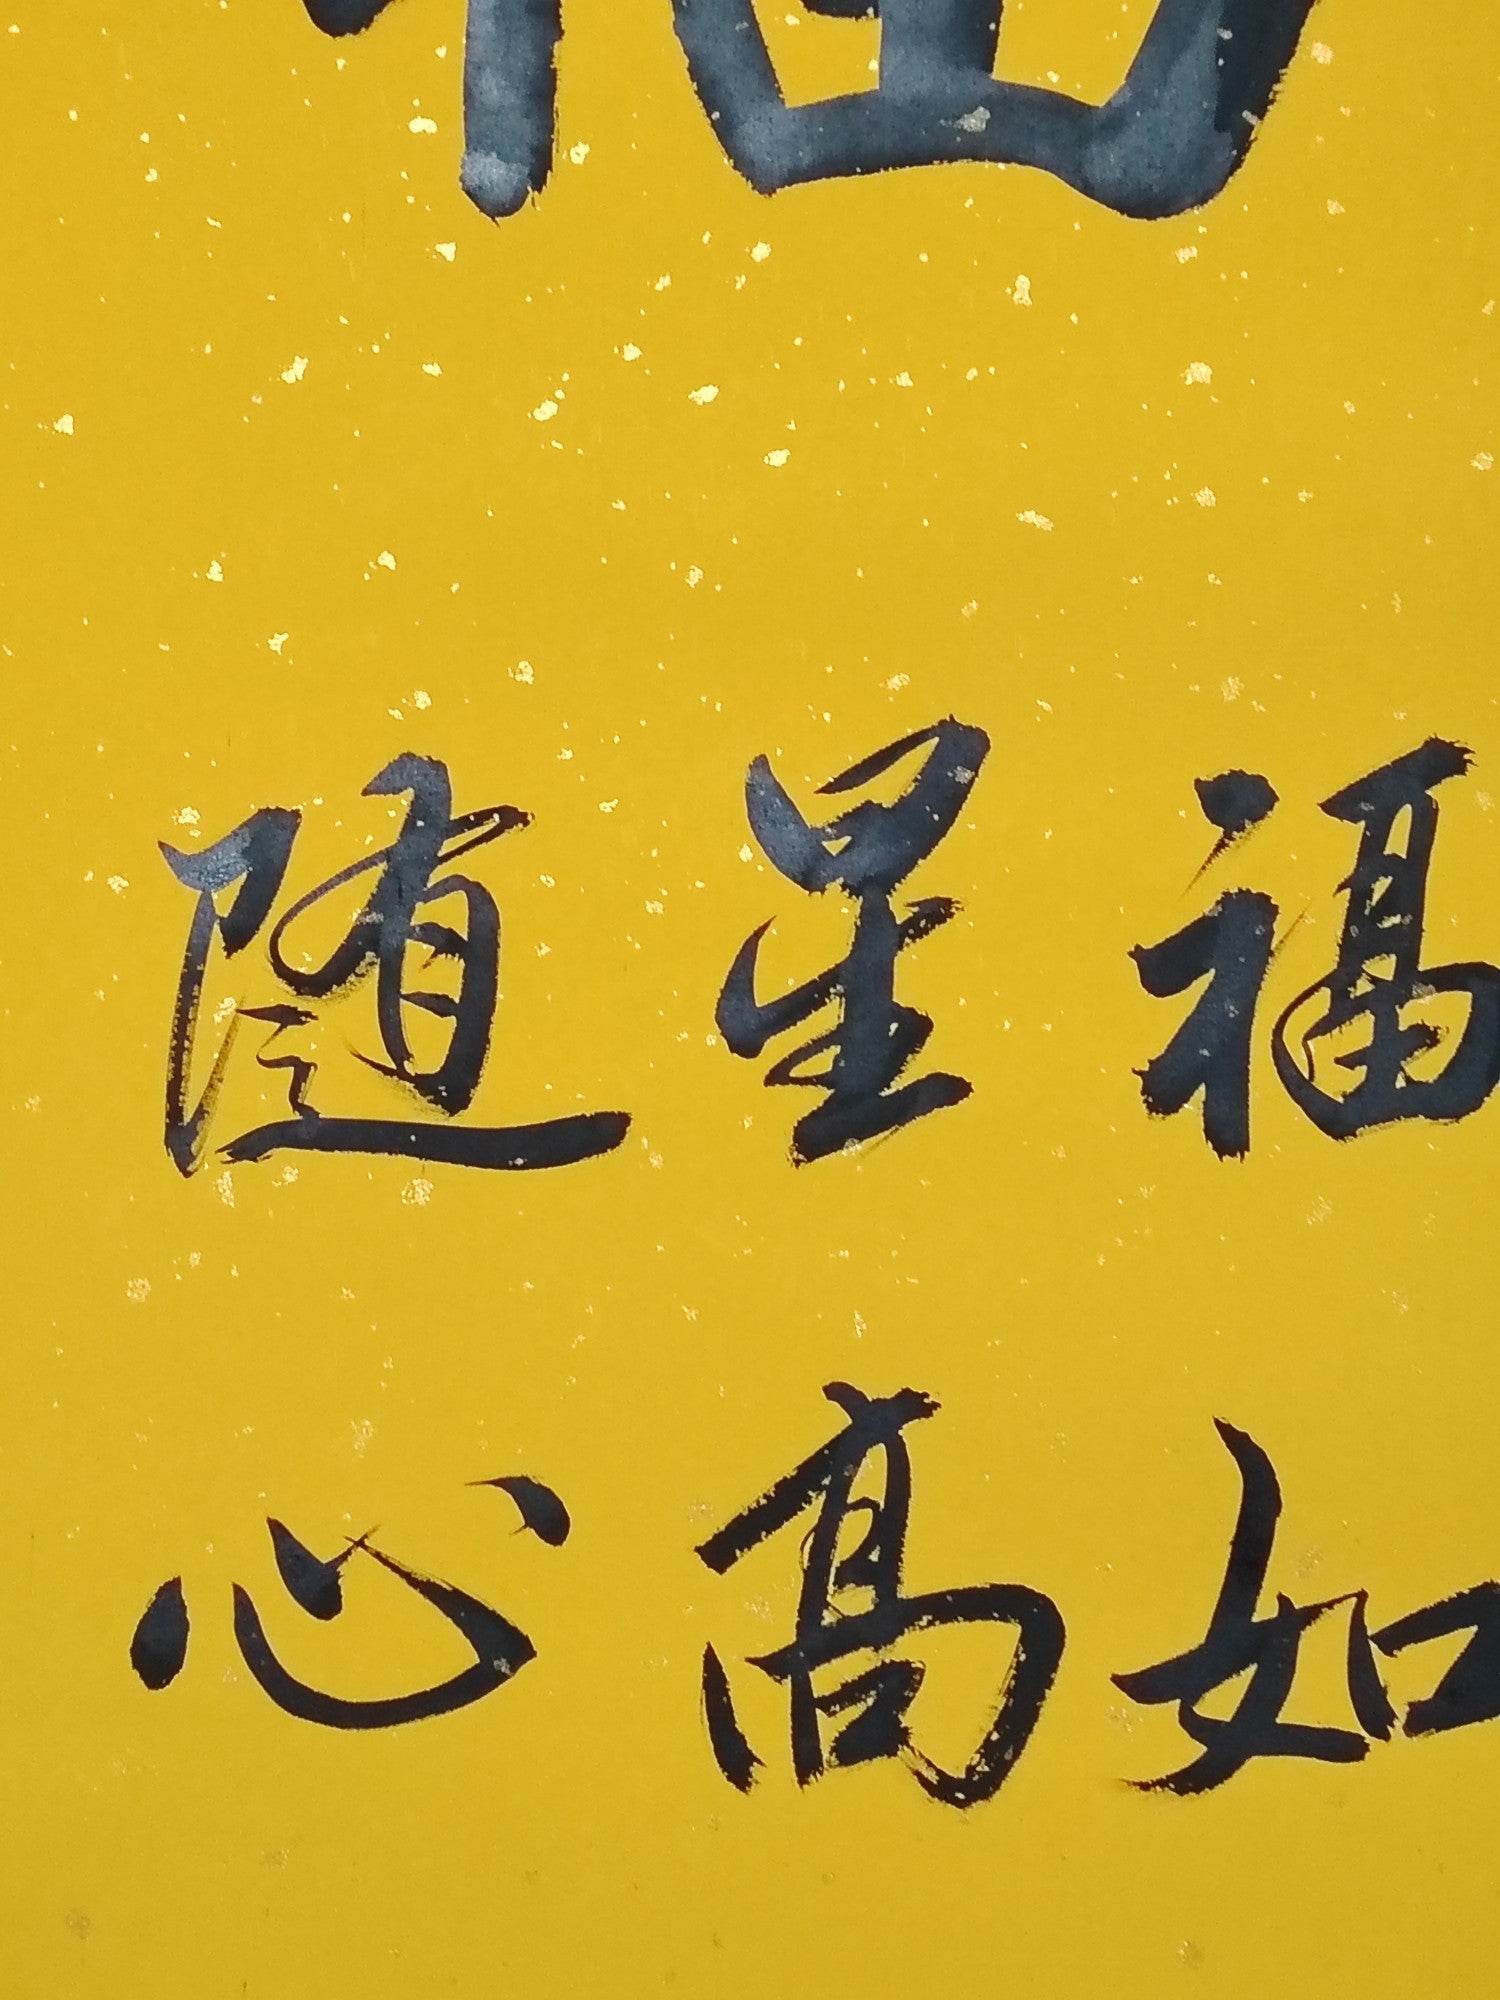 福如
星高
随心